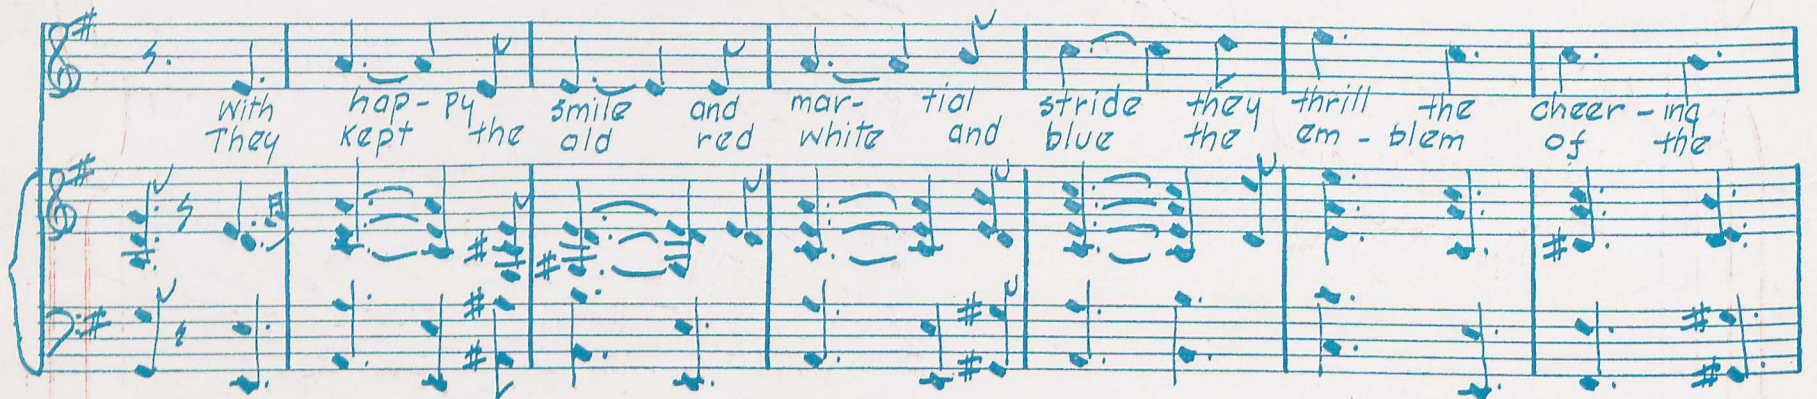 With hap-py smile and mar- tial stride they thrill the cheer-ing
They kept the old red white and blue the em-blem of the